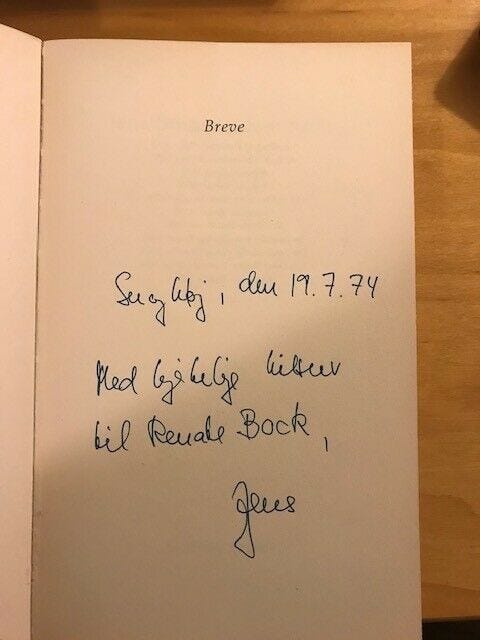 Breve
, den 19.7.74
Med hjertelige hilsner
til Renate Bock,
Jens